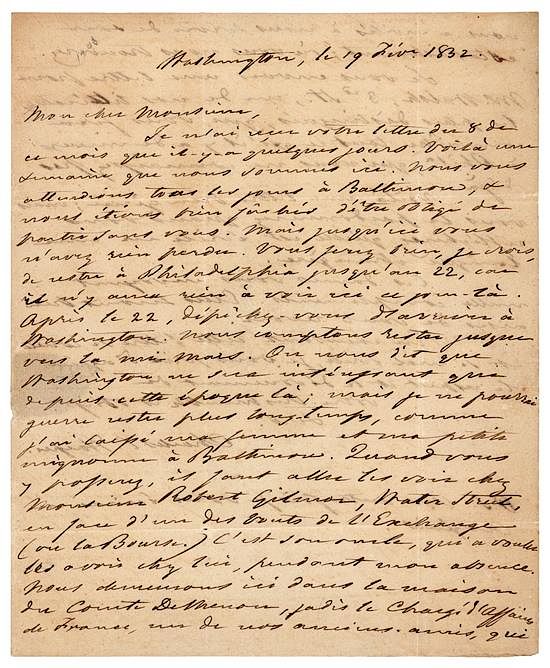 Washington, le 19 Févr. 1832.
Mon cher Monsieur,
Je n'ai reçu votre lettre du 8 de
ce mois que il-y-a quelques jours. Voilà une
semaine que nous sommes ici. Nous vous
attendions tous les jours à Baltimore, &
nous étions bien fâchés d'être obligé de
partir sans vous. Mais jusqu'ici vous
n'avez rien perdu. Vous ferez bien, je crois,
de rester à Philadelphia jusqu'au 22, car
il n'y aura rien à voir ici ce jour-là.
Après le 22, dépêchez-vous d'arriver à
Washington. Nous comptons rester jusque
vers la mi Mars. On nous dit que
Washington ne sera intéressant que
depuis cette époque là; mais je ne pourrai
guerre rester plus longtemps comme
j'ai laissé ma femme et ma petite
mignonne à Baltimore. Quand vous
y passerez, il faut aller les voir chez
Monsieur Robert Gilmor, Water Street,
en face d'un des bouts de l'Exchange
(ou la Bourse.) C'est son oncle, qui a voulu
les avoir chez lui, pendant mon absence.
Nous demeurons ici dans la maison
du Comte De Menou, jadis le Chargé d'Affaires
de France, un de nos anciens amis, qui